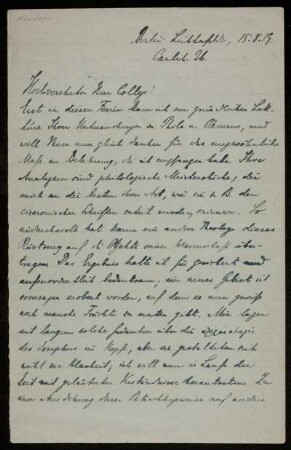 Berlin Lichterfelde, 15.8.19.
Carlstr. 26.
Hochverehrter Herr College!
Erst in diesen Ferien kam ich zur gründlichen Lek-
türe Ihrer Untersuchungen zu Philo u. Clemens, und
will Ihnen nun gleich danken für das ungewöhnliche
Maß an Belehrung, die ich empfangen habe. Ihre
Analysen sind philologische Meisterstücke, die
mich an die besten ihrer Art, wie sie z. B. den
ciceronischen Schriften zuteil wurden, erinnern. So
eindrucksvoll hat kaum ein andrer Theologe dieses
Rüstzeug auf die Objekte seiner Wissenschaft über-
tragen. Das Ergebnis halte ich für gesichert und
außerordentlich bedeutsam, ein neues Gebiet ist
sozusagen erobert worden, auf dem es nun gewiß
noch manche Früchte zu ernten gibt. Mir lagen
seit langem solche Gedanken über die
des Josephus im Kopf, aber sie gestalteten sich
nicht zur Klarheit; ich will nun im Laufe der
Zeit mit geläutertem Verständnisse herantreten. Zu
einer Ausdehnung dieser Betrachtungsweise auf andre